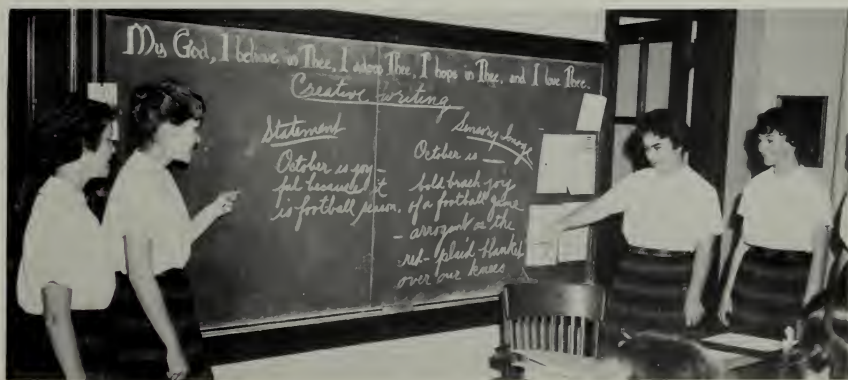 My God, I believe in Thee, I adore Thee, I hope in Thee, and I love Thee.
Creative writing
Statement
October is joy-
ful because it
is football season.
Sensory Image
October is —
bold brash joy
of a football game
- arrogant as the
red-plaid blanket
over our knees